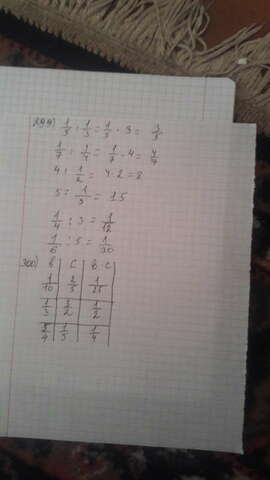 299) 1/5 : 1/3 = 1/5 · 3 = 3/5
1/7 : 1/4 = 1/7 · 4 = 4/7
4 : 1/2 = 4 · 2 = 8
5 : 1/3 = 15
1/4 : 3 = 1/12
1/6 : 5 = 1/30
300) B | C | B · C
1/10 | 2/5 | 1/25
1/3 | 3/2 | 1/2
5/4 | 1/5 | 1/4